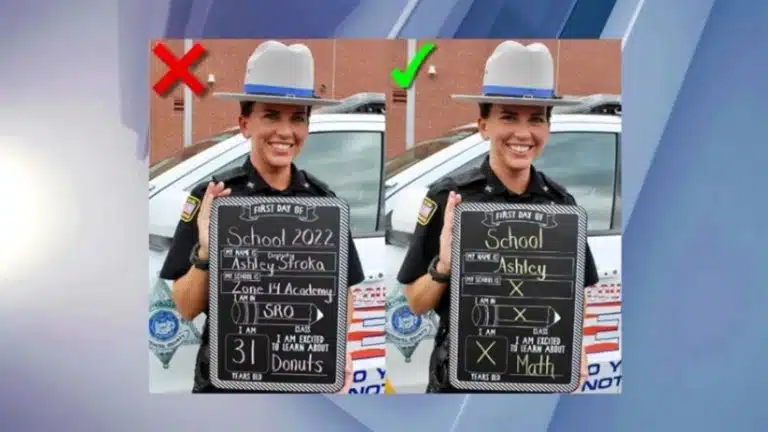 FIRST DAY OF
School 2022
MY NAME IS: Deputy
Ashley Stroka
MY SCHOOL IS:
Zone 14 Academy
I AM IN
SRO
CLASS
I AM
31
YEARS OLD
I AM EXCITED
TO LEARN ABOUT
Donuts
FIRST DAY OF
School
MY NAME IS:
Ashley
MY SCHOOL IS:
X
I AM IN
X
CLASS
I AM
X
YEARS OLD
I AM EXCITED
TO LEARN ABOUT
Math